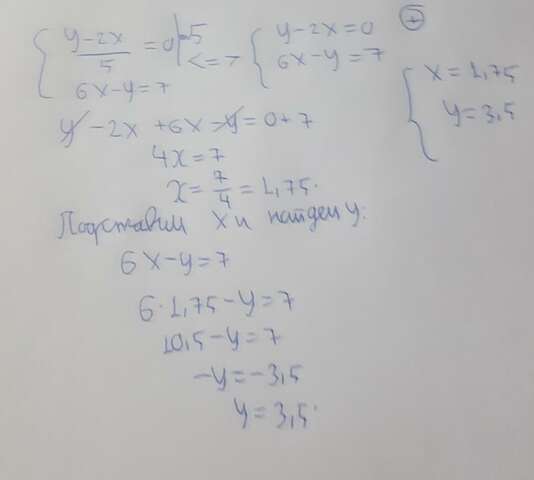 { (y-2x)/5 = 0 |·5 <=> { y-2x=0 ⊕
6x-y=7 6x-y=7
{ x=1,75
y=3,5
y-2x+6x-y=0+7
4x=7
x=7/4=1,75.
Подставим x и найдем y:
6x-y=7
6·1,75-y=7
10,5-y=7
-y=-3,5
y=3,5.